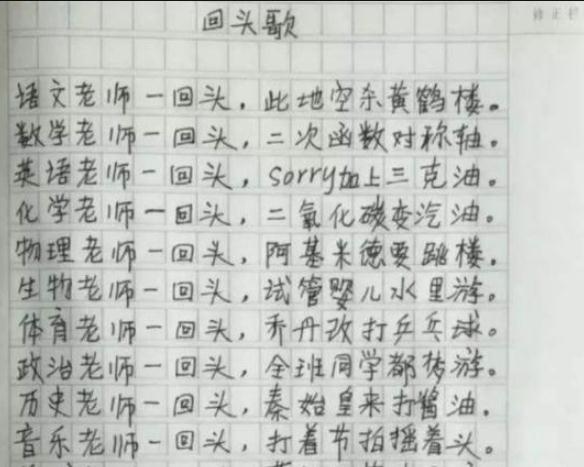 修正栏
回头歌
语文老师一回头，此地空余黄鹤楼。
数学老师一回头，二次函数对称轴。
英语老师一回头，sorry加上三克油。
化学老师一回头，二氧化碳变汽油。
物理老师一回头，阿基米德要跳楼。
生物老师一回头，试管婴儿水里游。
体育老师一回头，乔丹改打乒乓球。
政治老师一回头，全班同学都梦游。
历史老师一回头，秦始皇来打酱油。
音乐老师一回头，打着节拍摇着头。